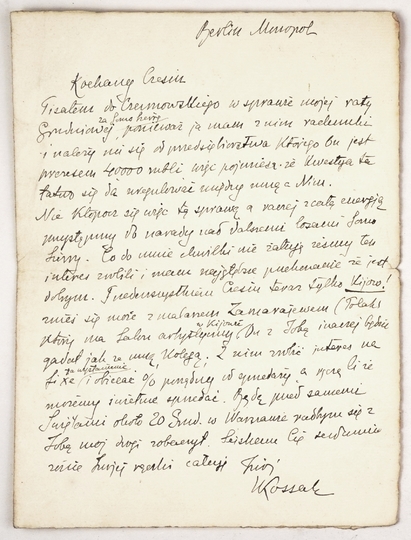 Berlin Monopol
Kochany Cesiu
Pisałem do Czernowskiego w sprawie mojej raty
za Somo Sierrę
Grudniowej ponieważ ja mam z nim rachunki
i należy mi się od przedsiębiorstwa którego on jest
prezesem 40000 rubli więc pojmiesz że kwestya ta
łatwo się da uregulować między mną a Nim.
Nie kłopocz się więc tą sprawą a raczej z całą energią
przystąpmy do narady nad dalszemi losami Somo
Sierry. Co do mnie chwilki nie żałuję żeśmy ten
interes zrobili i mam najgłębsze przekonanie że jest
dobrym. Przedewszystkiem Cesiu teraz tylko Kijow.
znieś się może z malarzem (Polak)
w Kijowie
który ma Salon artystyczny On z Tobą inaczej będzie
gadał jak ze mną Kolegą, z nim zrobić interes na
za wystawienie
fixe i obiecać % porządny od sprzedaży a ręczę że
możemy świetnie sprzedać. Będę przed samemi
Świętami około 20 Grud. w Warszawie radbym się z
Tobą mój drogi zobaczyć. Ściskam Cię serdecznie
żonie Twojej rączki całuję Twój
WKossak